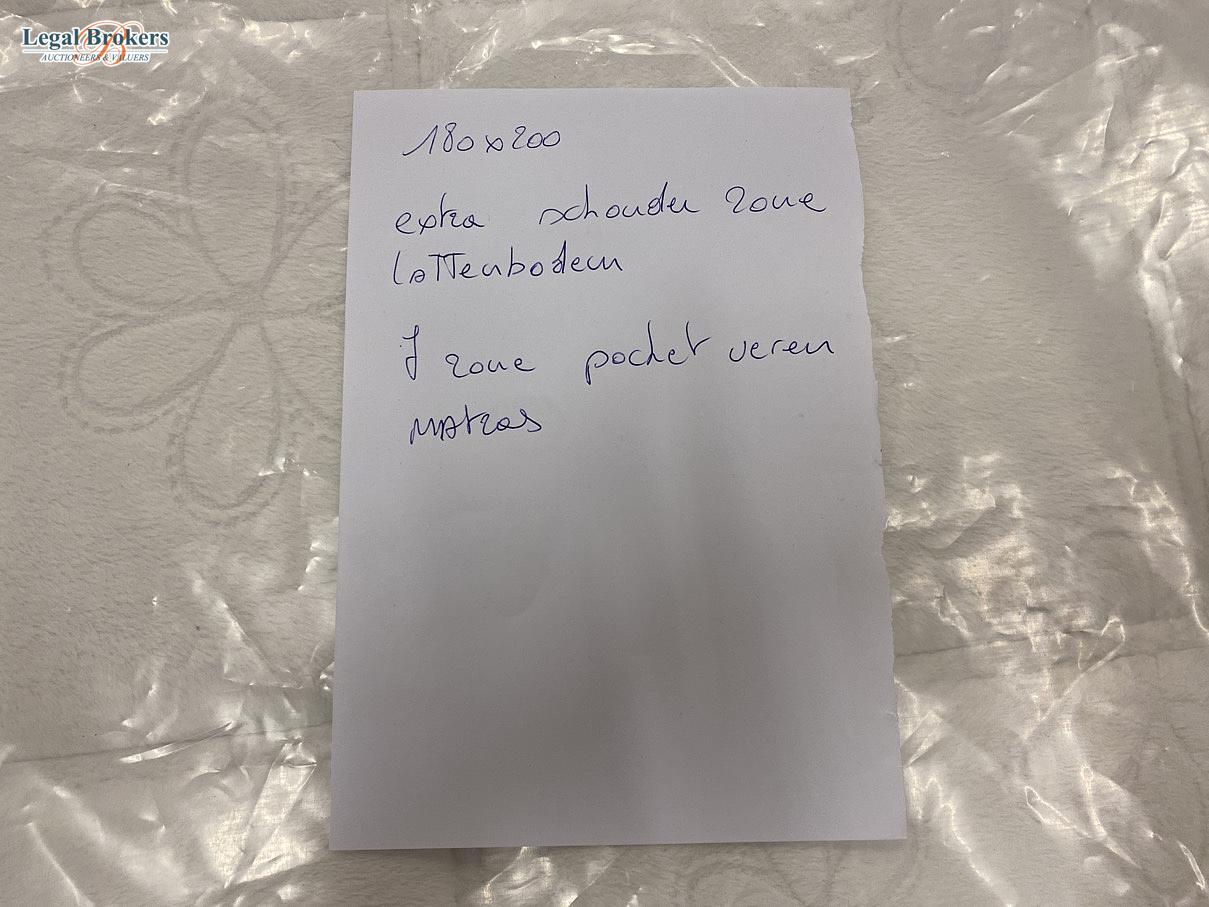 Legal Brokers
AUCTIONEERS & VALUERS
180x200
extra schouder zone
Lattenbodem
7 zone pocket veren
matras